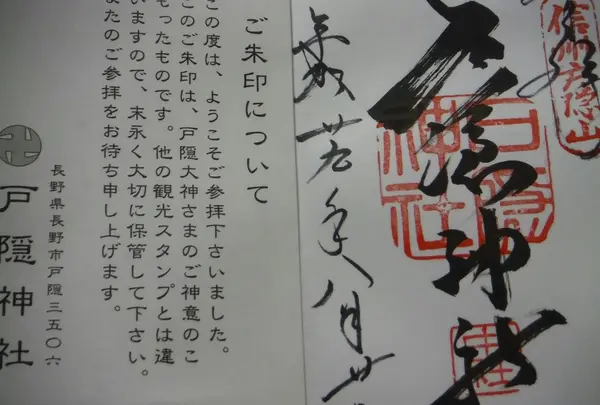 信州戸隠山
戸隠神社
戸隠神社
中社
平成廿五年八月廿
ご朱印について
この度は、ようこそご参拝下さいました。
このご朱印は、戸隠大神さまのご神意のこ
もったものです。他の観光スタンプとは違
いますので、末永く大切に保管して下さい。
またのご参拝をお待ち申し上げます。
長野県長野市戸隠三五〇六
戸隠神社